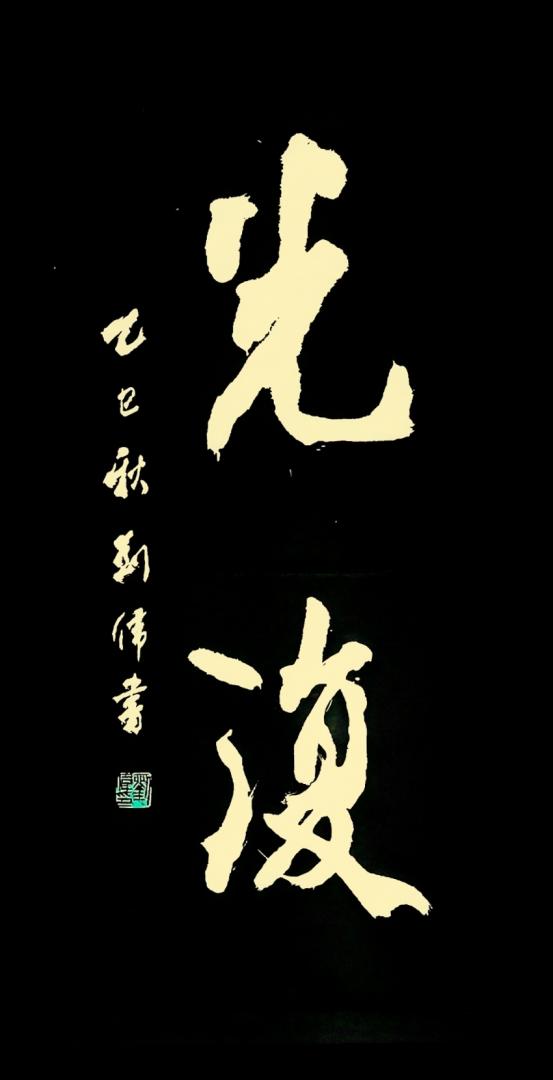 光復
乙巳秋刘偉書